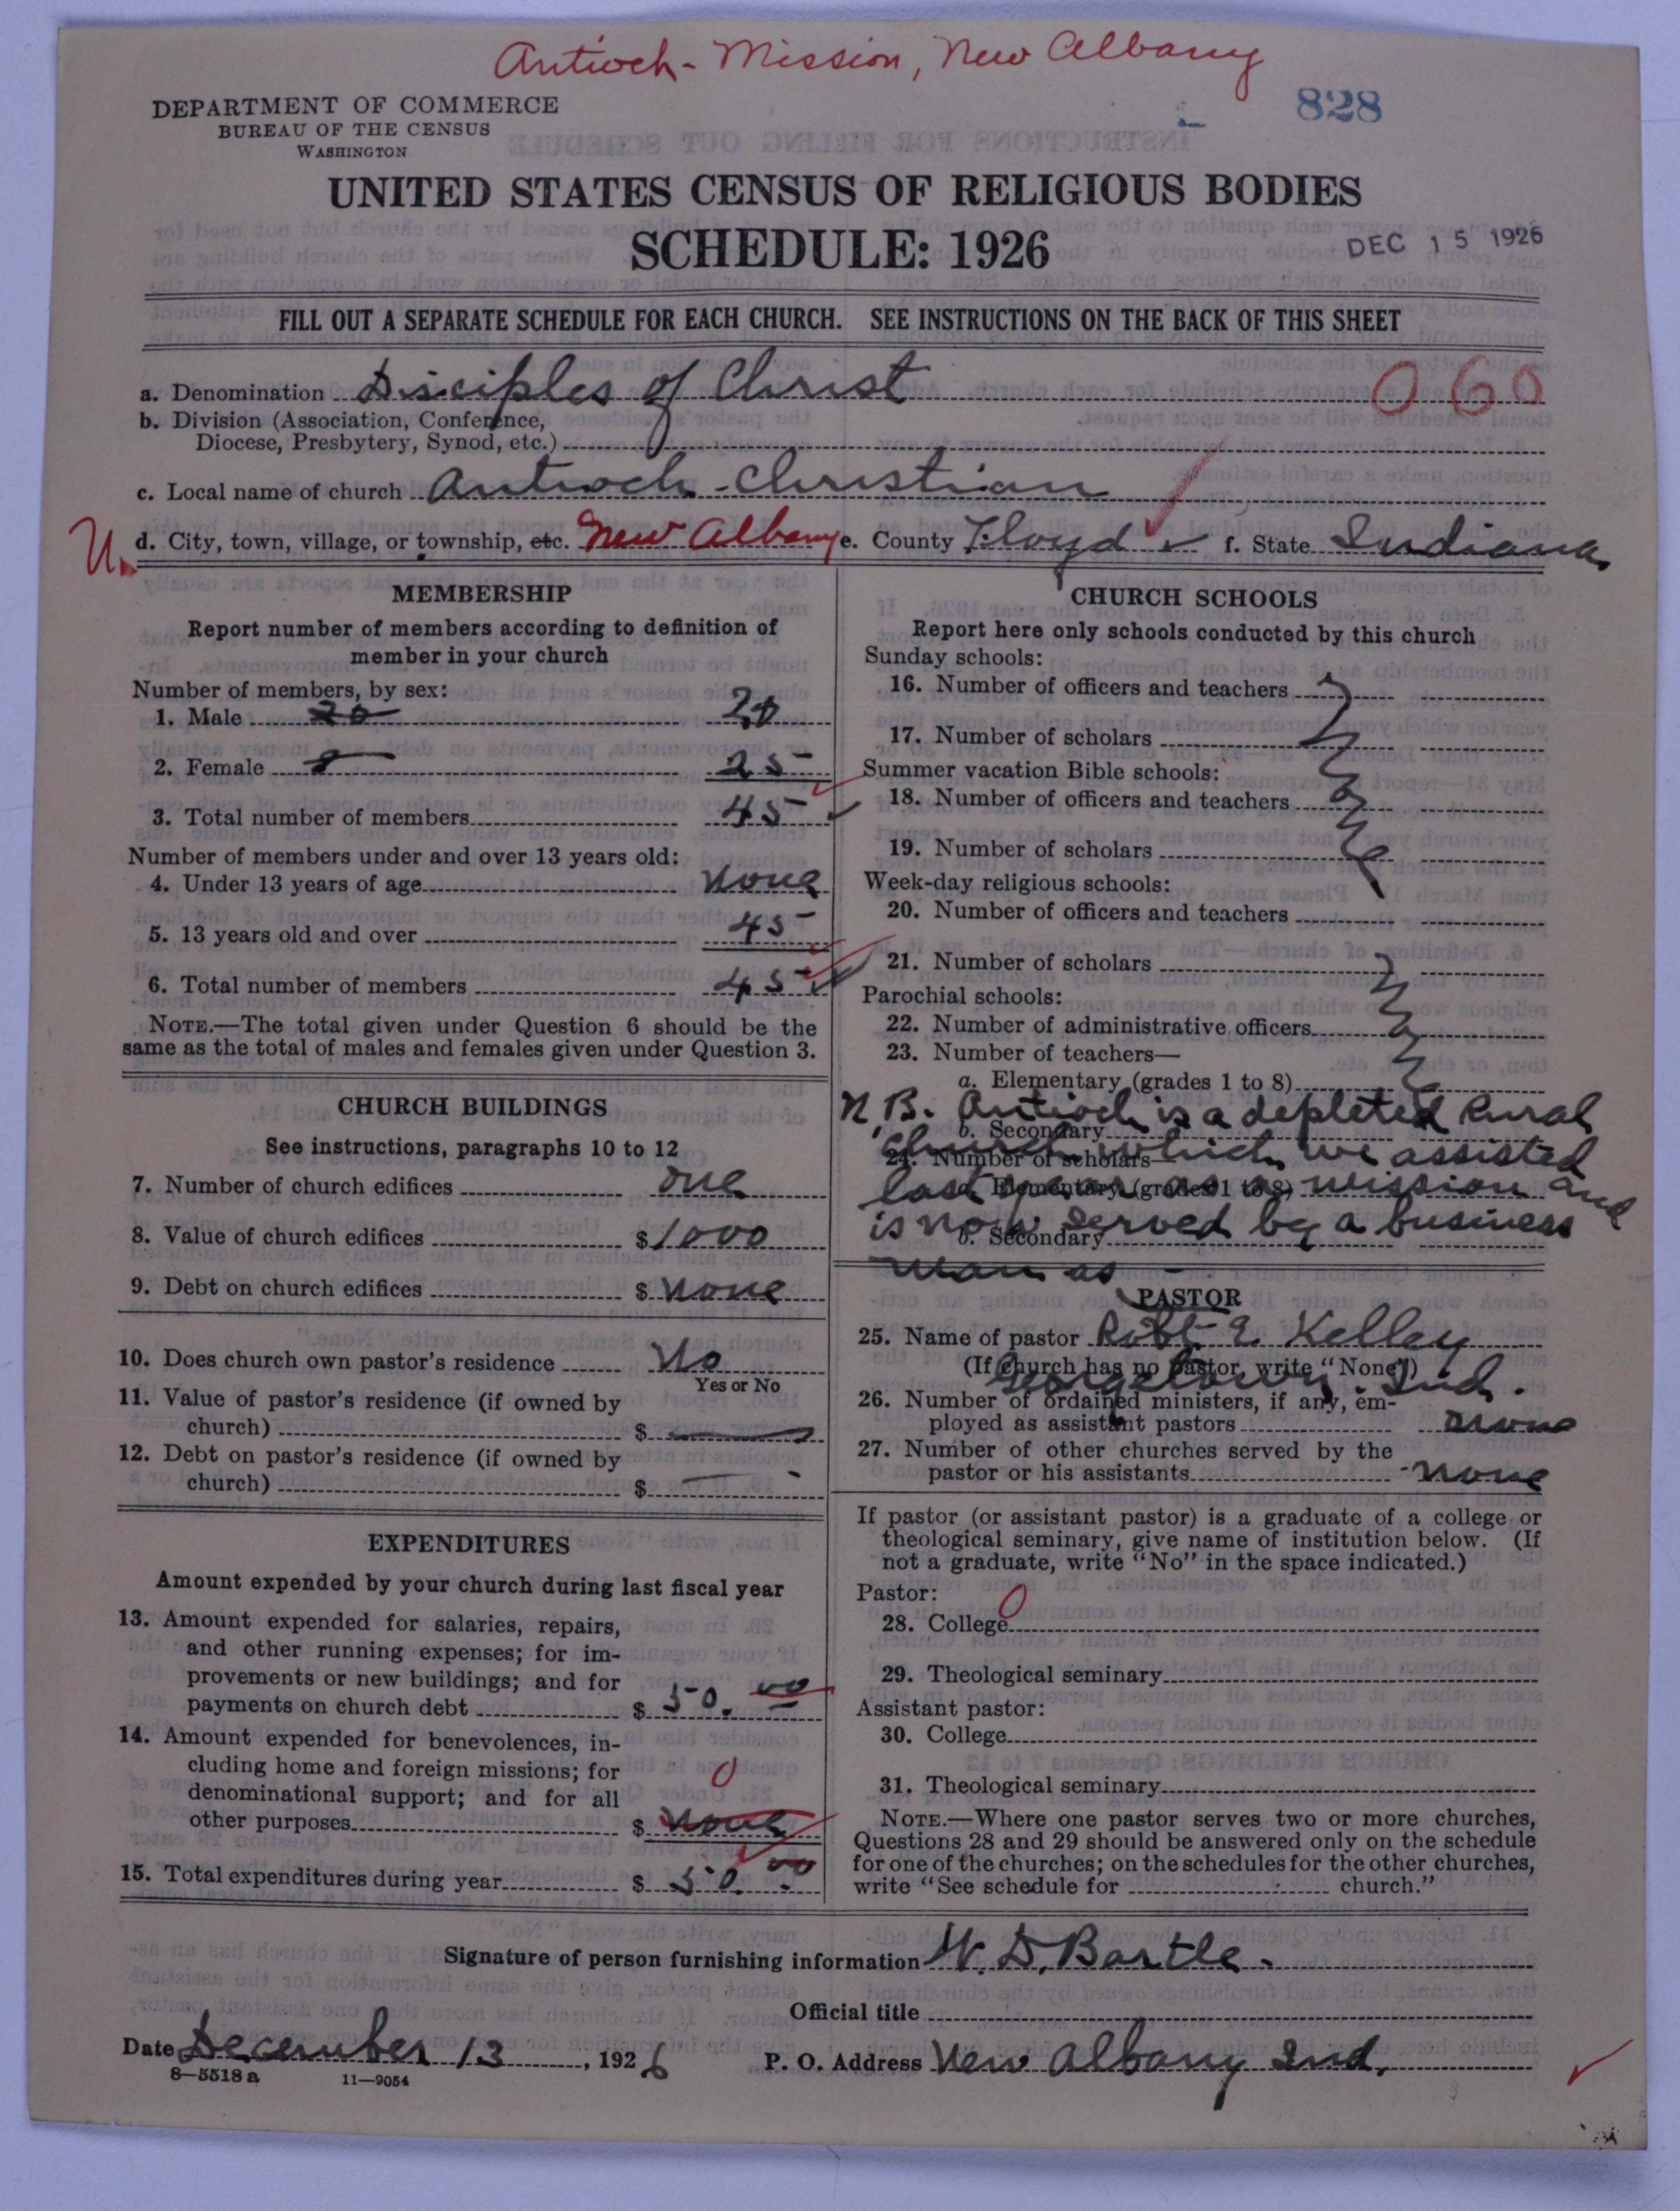 Antioch - Mission, New Albany
828
DEPARTMENT OF COMMERCE
BUREAU OF THE CENSUS
WASHINGTON
UNITED STATES CENSUS OF RELIGIOUS BODIES
SCHEDULE: 1926
DEC 15 1926
FILL OUT A SEPARATE SCHEDULE FOR EACH CHURCH. SEE INSTRUCTIONS ON THE BACK OF THIS SHEET
a. Denomination Disciples of Christ 060
b. Division (Association, Conference,
Diocese, Presbytery, Synod, etc.)
c. Local name of church Antioch Christian
U. d. City, town, village, or township, etc. New Albany e. County Floyd f. State Indiana
MEMBERSHIP
Report number of members according to definition of
member in your church
Number of members, by sex:
1. Male 20 20
2. Female 25
3. Total number of members 45
Number of members under and over 13 years old:
4. Under 13 years of age None
5. 13 years old and over 45
6. Total number of members 45
NOTE.—The total given under Question 6 should be the
same as the total of males and females given under Question 3.
CHURCH BUILDINGS
See instructions, paragraphs 10 to 12
7. Number of church edifices one
8. Value of church edifices $1000
9. Debt on church edifices $ None
10. Does church own pastor's residence No
Yes or No
11. Value of pastor's residence (if owned by
church) $
12. Debt on pastor's residence (if owned by
church) $
EXPENDITURES
Amount expended by your church during last fiscal year
13. Amount expended for salaries, repairs,
and other running expenses; for im-
provements or new buildings; and for
payments on church debt $ 50.00
14. Amount expended for benevolences, in-
cluding home and foreign missions; for 0
denominational support; and for all
other purposes $ None
15. Total expenditures during year $ 50.00
CHURCH SCHOOLS
Report here only schools conducted by this church
Sunday schools:
16. Number of officers and teachers
17. Number of scholars
Summer vacation Bible schools:
18. Number of officers and teachers
19. Number of scholars
Week-day religious schools:
20. Number of officers and teachers
21. Number of scholars
Parochial schools:
22. Number of administrative officers
23. Number of teachers—
a. Elementary (grades 1 to 8)
N.B. Antioch is a depleted Rural
b. Secondary
church which we assisted
24. Number of scholars—
last year as a mission and
a. Elementary (grades 1 to 8)
is now served by a business
b. Secondary
man as -
PASTOR
25. Name of pastor Robt. E. Kelley
(If church has no pastor, write "None")
Georgetown, Ind.
26. Number of ordained ministers, if any, em-
ployed as assistant pastors None
27. Number of other churches served by the
pastor or his assistants None
If pastor (or assistant pastor) is a graduate of a college or
theological seminary, give name of institution below. (If
not a graduate, write "No" in the space indicated.)
Pastor:
28. College 0
29. Theological seminary
Assistant pastor:
30. College
31. Theological seminary
NOTE.—Where one pastor serves two or more churches,
Questions 28 and 29 should be answered only on the schedule
for one of the churches; on the schedules for the other churches,
write "See schedule for church."
Signature of person furnishing information W. D. Bartle.
Official title
Date December 13, 1926 P. O. Address New Albany Ind.
8—5518 a 11—9054